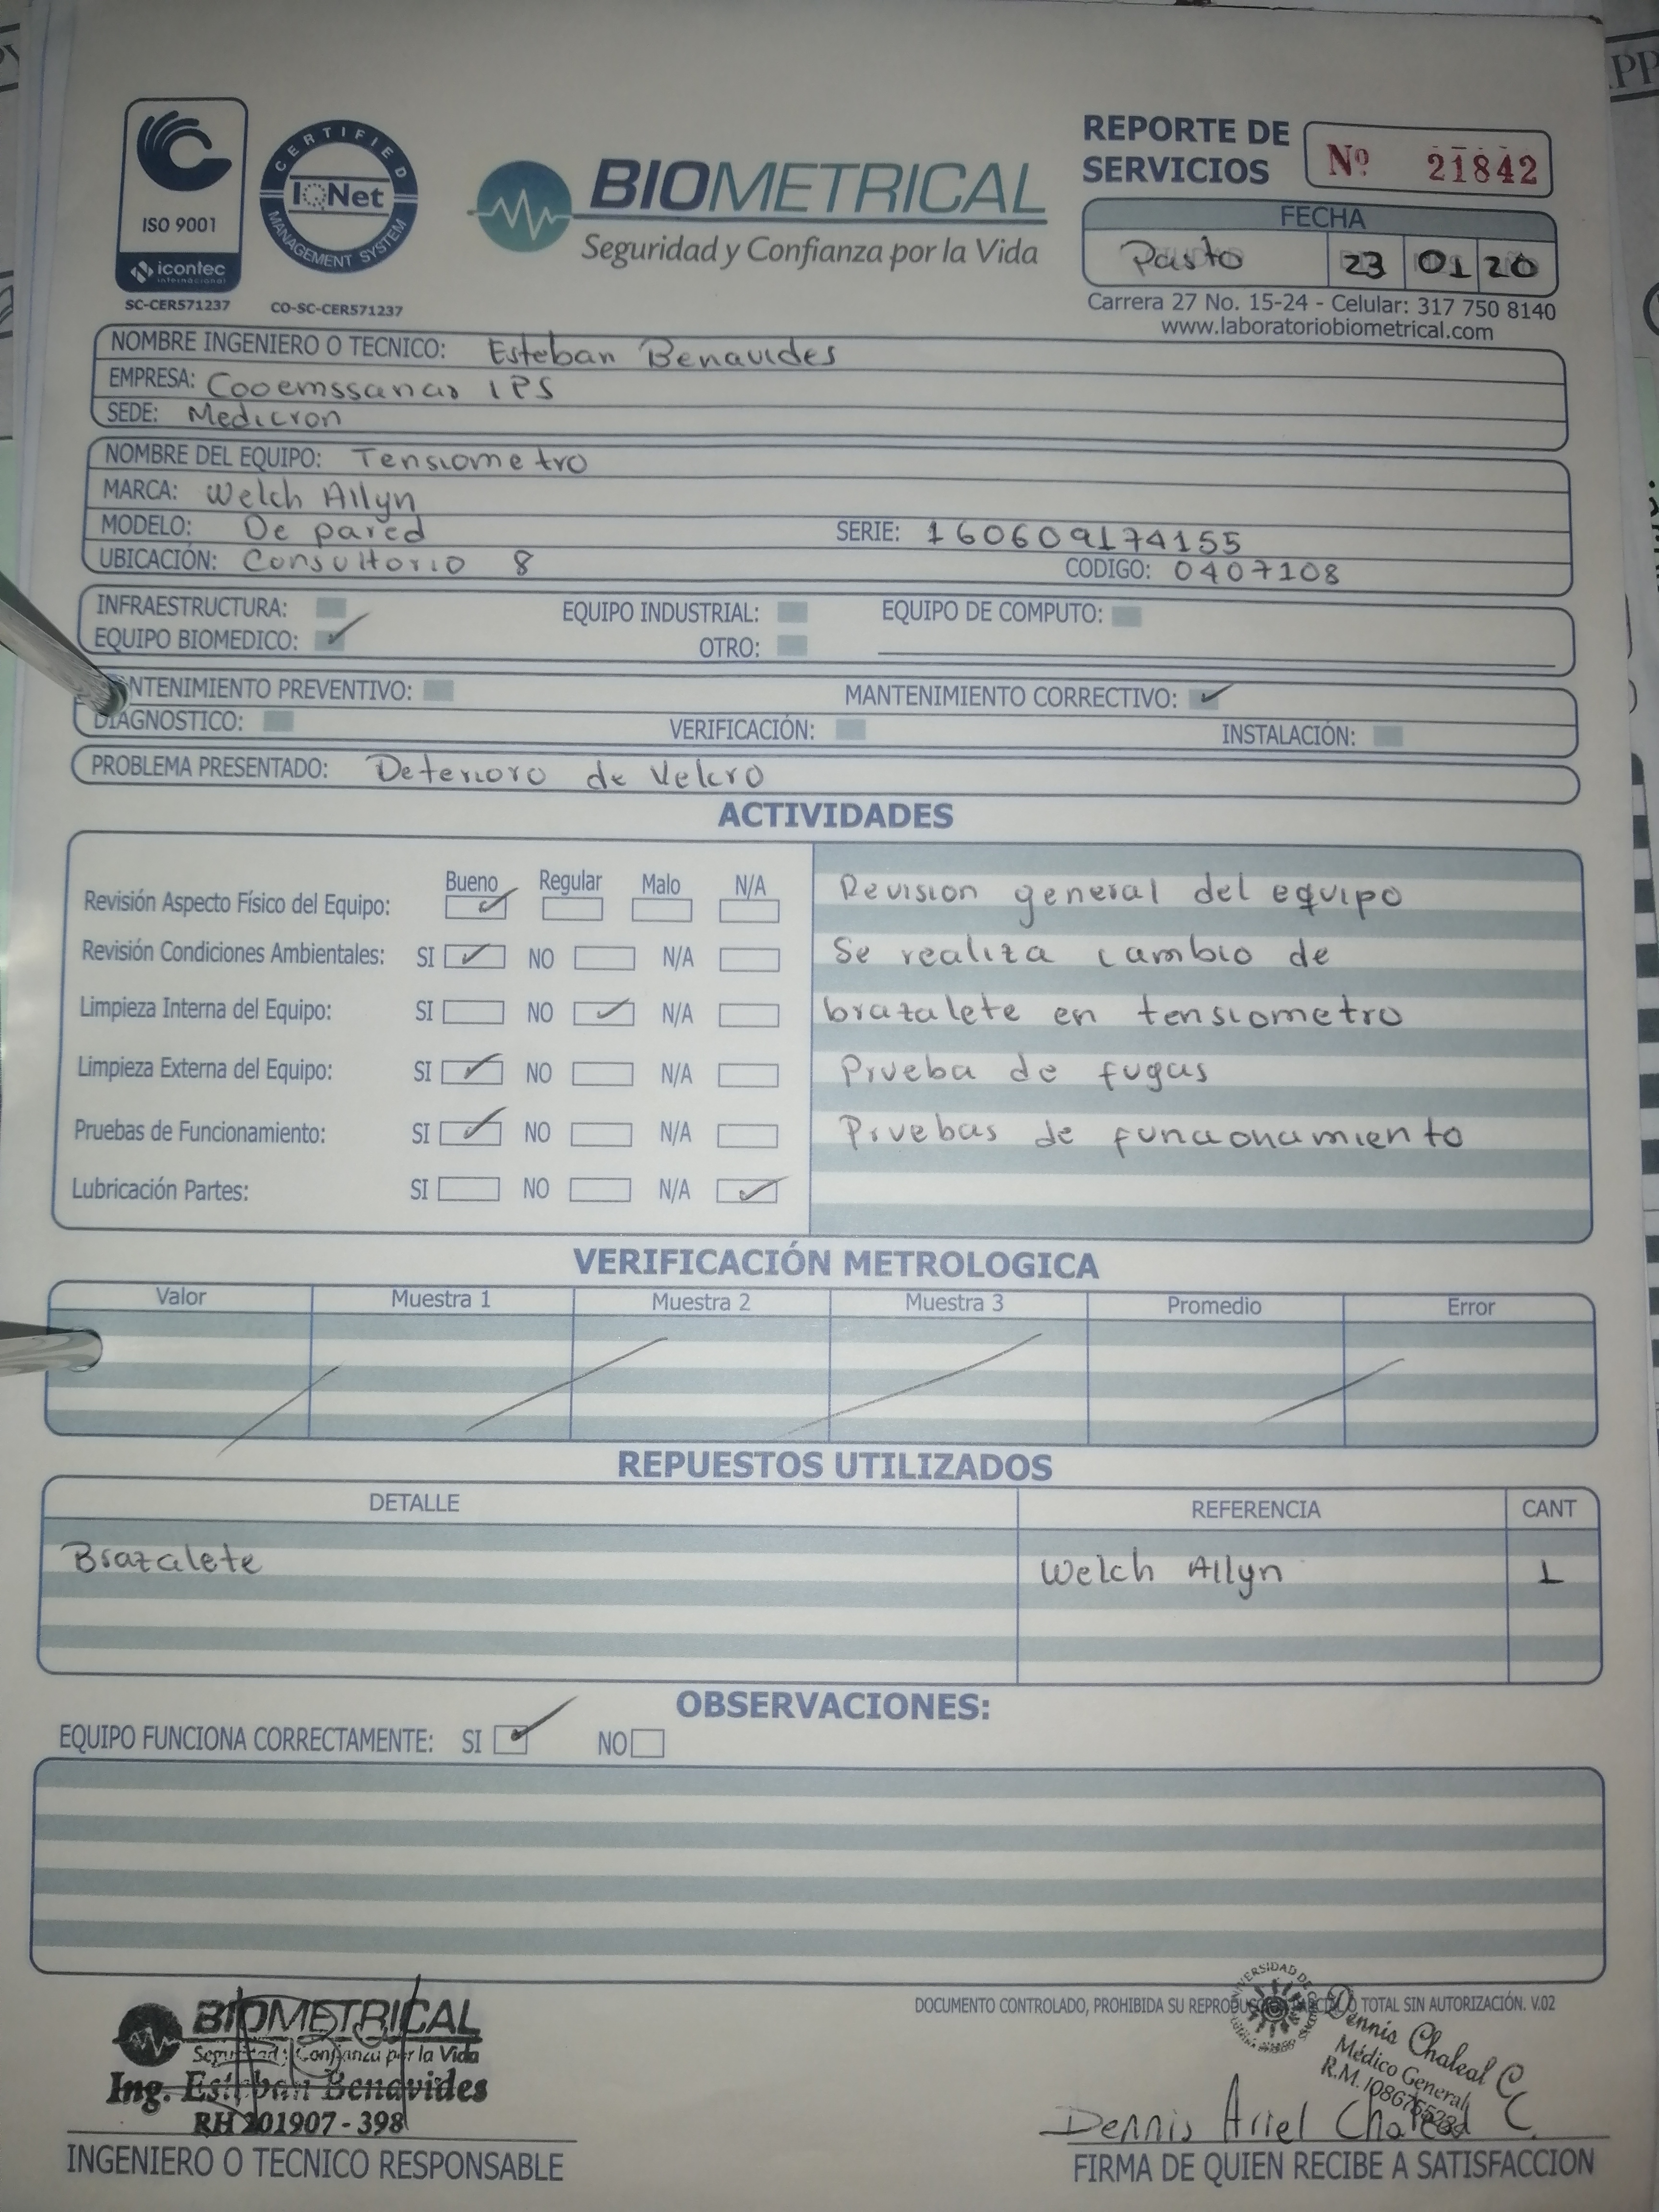 REPORTE DE
SERVICIOS
Nº 21842
ISO 9001
icontec
internacional
SC-CER571237
CERTIFIED
IQNet
MANAGEMENT SYSTEM
CO-SC-CER571237
BIOMETRICAL
Seguridad y Confianza por la Vida
FECHA
Pasto 23 01 20
Carrera 27 No. 15-24 - Celular: 317 750 8140
www.laboratoriobiometrical.com
NOMBRE INGENIERO O TECNICO: Esteban Benavides
EMPRESA: Cooemssanar IPS
SEDE: Medicron
NOMBRE DEL EQUIPO: Tensiometro
MARCA: Welch Allyn
MODELO: De pared SERIE: 160609174155
UBICACIÓN: Consultorio 8 CODIGO: 0407108
INFRAESTRUCTURA: EQUIPO INDUSTRIAL: EQUIPO DE COMPUTO:
EQUIPO BIOMEDICO: ✓ OTRO:
NTENIMIENTO PREVENTIVO: MANTENIMIENTO CORRECTIVO: ✓
DIAGNOSTICO: VERIFICACIÓN: INSTALACIÓN:
PROBLEMA PRESENTADO: Deterioro de Velcro
ACTIVIDADES
Bueno Regular Malo N/A
Revisión Aspecto Físico del Equipo: ✓ Revision general del equipo
Revisión Condiciones Ambientales: SI ✓ NO N/A Se realiza cambio de
Limpieza Interna del Equipo: SI NO ✓ N/A brazalete en tensiometro
Limpieza Externa del Equipo: SI ✓ NO N/A Prueba de fugas
Pruebas de Funcionamiento: SI ✓ NO N/A Pruebas de funcionamiento
Lubricación Partes: SI NO N/A ✓
VERIFICACIÓN METROLOGICA
Valor Muestra 1 Muestra 2 Muestra 3 Promedio Error
REPUESTOS UTILIZADOS
DETALLE REFERENCIA CANT
Brazalete Welch Allyn 1
OBSERVACIONES:
EQUIPO FUNCIONA CORRECTAMENTE: SI ✓ NO
DOCUMENTO CONTROLADO, PROHIBIDA SU TOTAL SIN AUTORIZACIÓN. V.02
BIOMETRICAL
Seguridad y Confianza por la Vida
Ing. Esteban Benavides
RH 201907 - 398
INGENIERO O TECNICO RESPONSABLE
Dennis Chaleal C.
Médico General
Dennis Ariel Chaleal C.
FIRMA DE QUIEN RECIBE A SATISFACCION